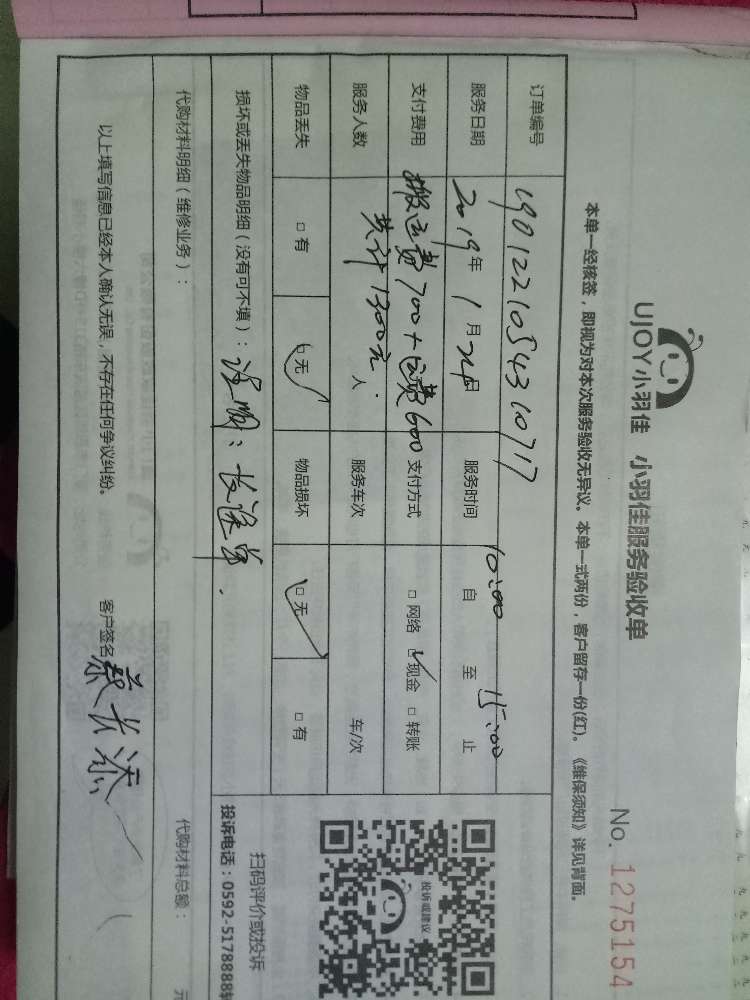 UJOY小羽佳 小羽佳服务验收单
No. 1275154
本单一经核签，即视为对本次服务验收无异议。本单一式两份，客户留存一份(红)。《维保须知》详见背面。
订单编号 19012210543 10717
服务日期 2019年 1月24日 服务时间 10:00 自 至 15:00 止
支付费用 搬运费700+运费600 共计1300元 支付方式 □网络 ☑现金 □转账
服务人数 人 服务车次 车/次
物品丢失 □有 ☑无 物品损坏 ☑无 □有
损坏或丢失物品明细（没有可不填）：说明：长途
代购材料明细（维修业务）： 代购材料总额： 元
以上填写信息已经本人确认无误，不存在任何争议纠纷。 客户签名 蔡长添
投诉或建议
扫码评价或投诉
投诉电话：0592-5178888转